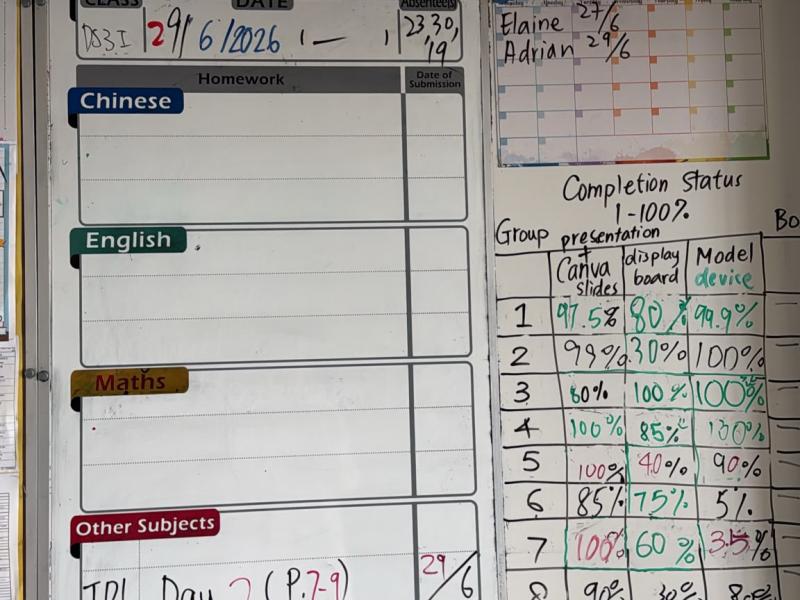 CLASS DATE Absentee(s)
DS3I 29/6/2026 ( — ) 23,30,
19
Homework Date of
Submission
Chinese
English
Maths
Other Subjects
Day 2 (P.7-9) 29/6
Elaine 27/6
Adrian 29/6
Completion Status
1-100%
Group presentation
+
Canva slides display board Model device
1 97.5% 80% 99.9%
2 99% 30% 100%
3 80% 100% 100%
4 100% 85% 100%
5 100% 40% 90%
6 85% 75% 5%
7 100% 60% %
8 90% 30% 80%
Bo